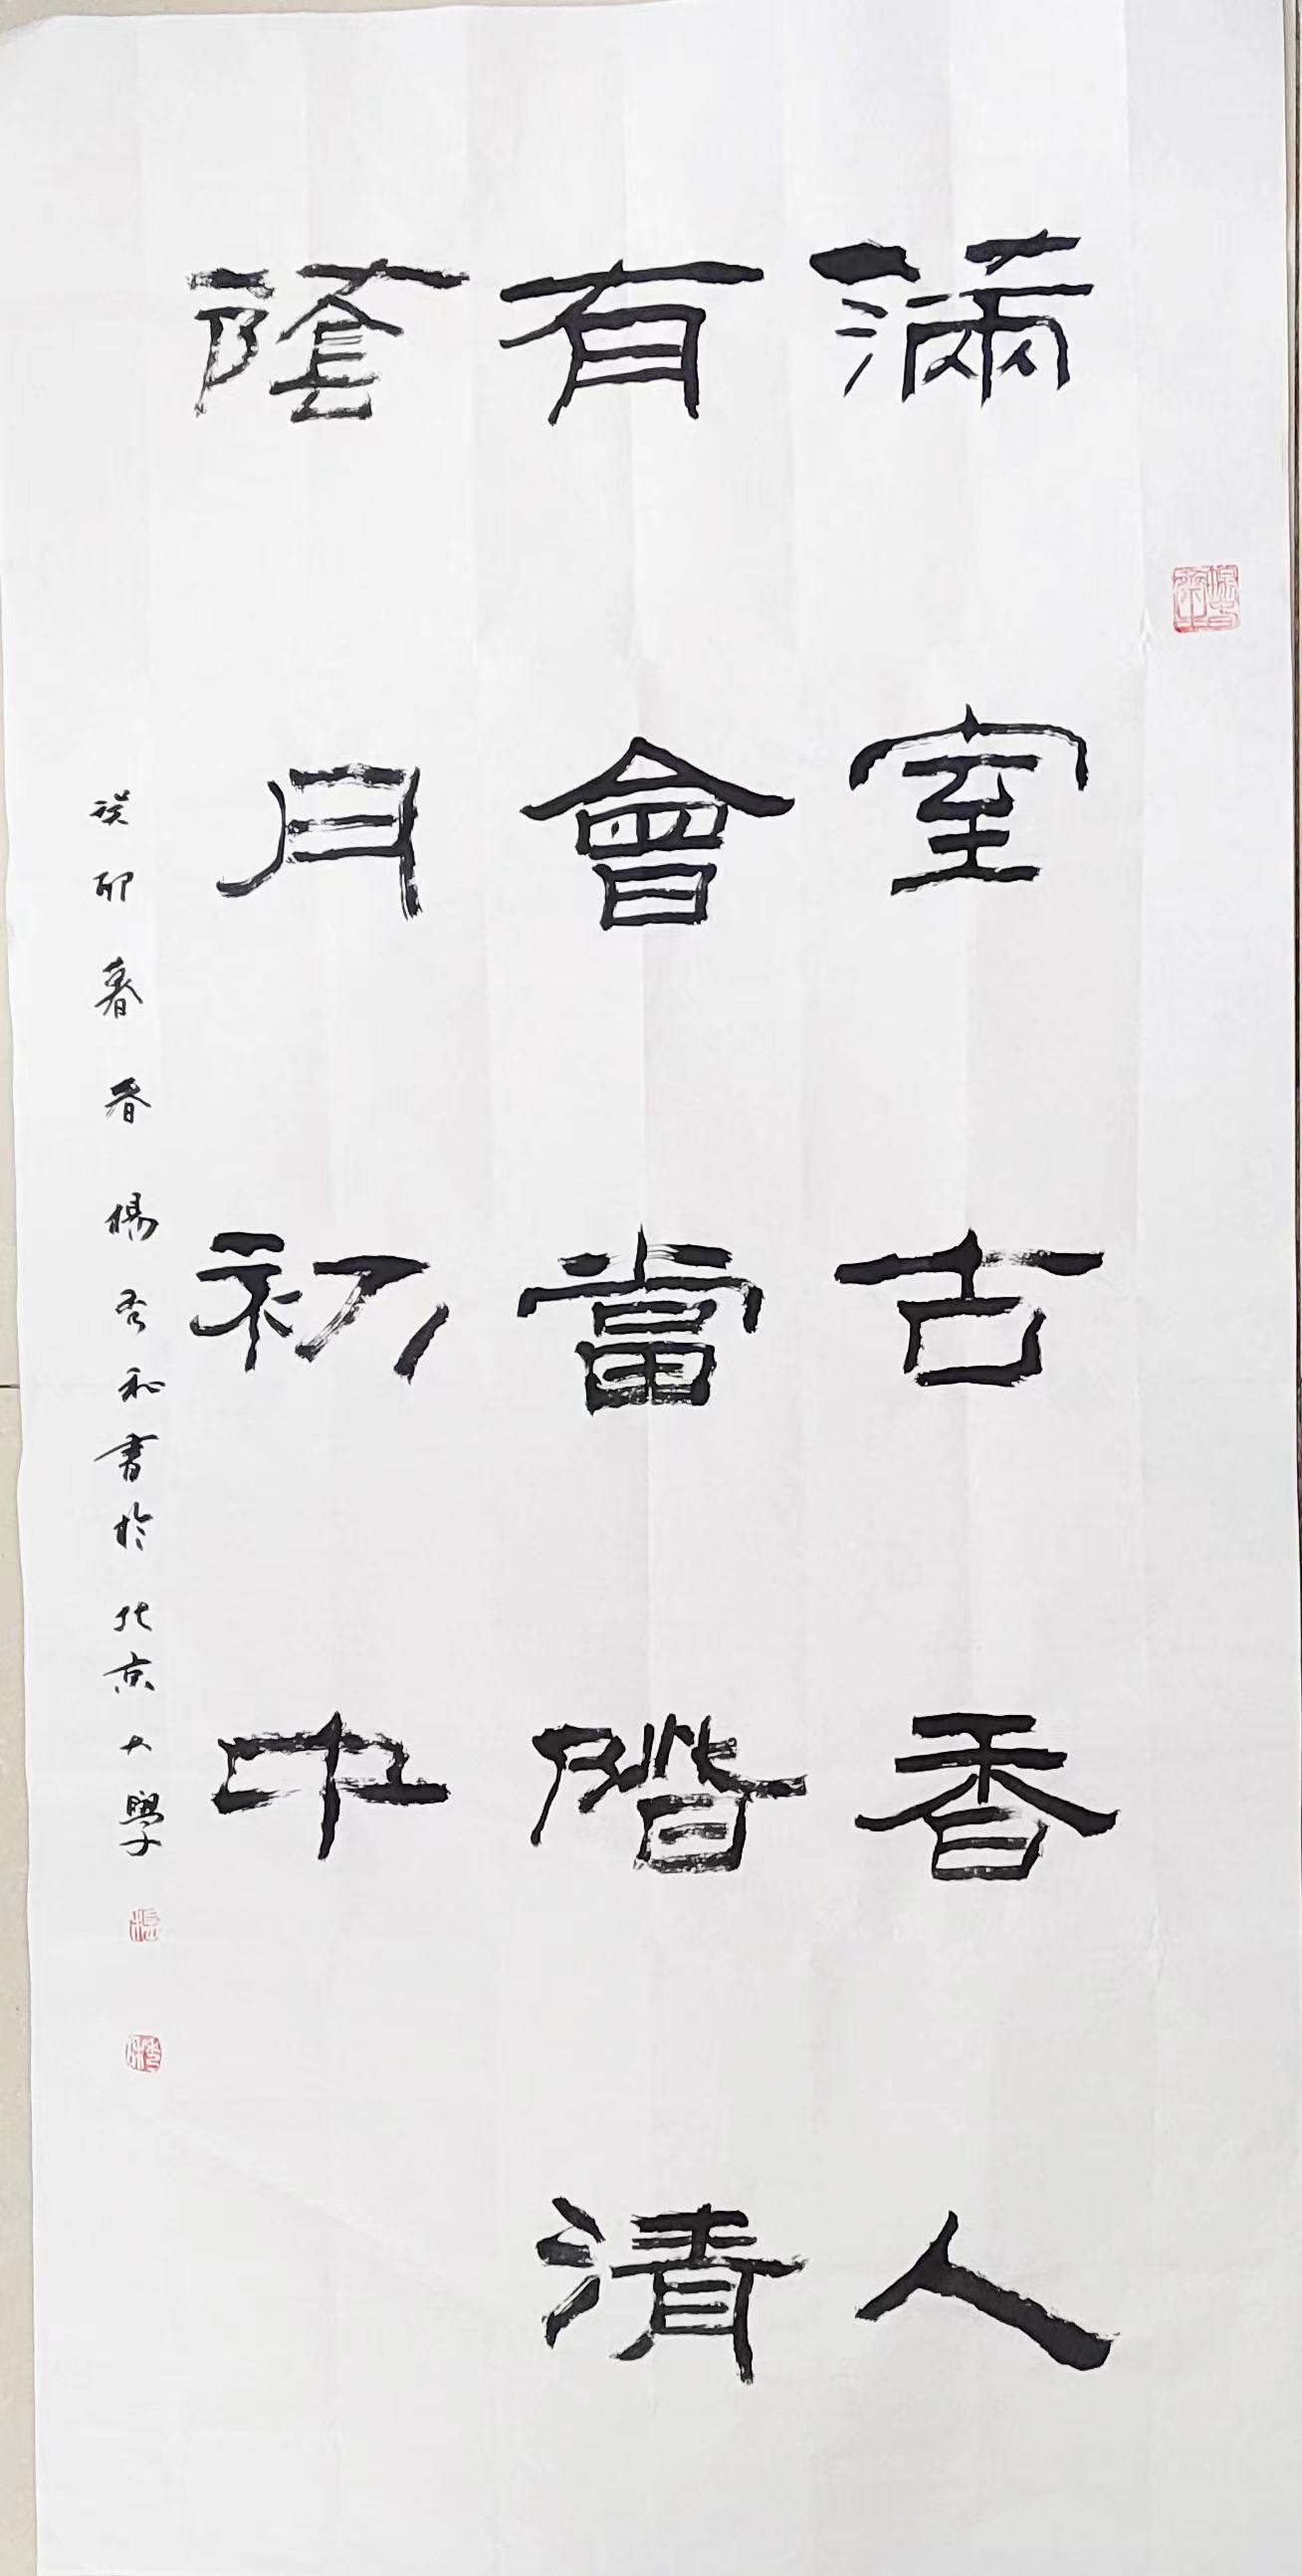 滿室古香人
有會當階清
陰月初中
癸卯暮春楊秀和書於北京大學